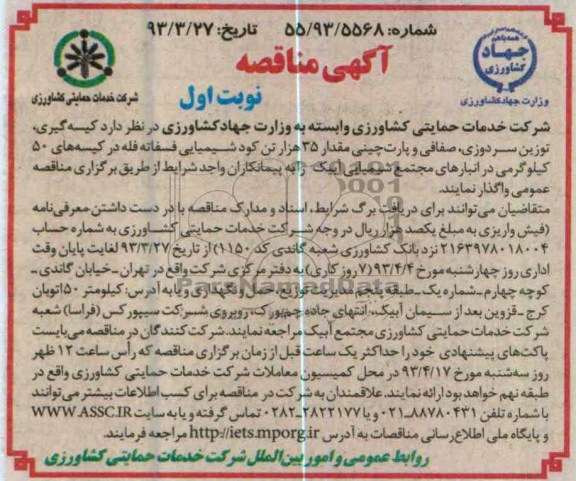 شماره: ۵۵/۹۳/۵۵۶۸ تاریخ: ۹۳/۳/۲۷
همه با هم
جهاد
کشاورزی
وزارت جهاد کشاورزی
شرکت خدمات حمایتی کشاورزی
آگهی مناقصه
نوبت اول
شرکت خدمات حمایتی کشاورزی وابسته به وزارت جهاد کشاورزی در نظر دارد کیسه گیری،
توزین سردوزی، صفافی و پارت‌چینی مقدار ۳۵ هزار تن کود شیمیایی فسفاته فله در کیسه‌های ۵۰
کیلوگرمی در انبارهای مجتمع شیمیایی آبیک را به پیمانکاران واجد شرایط از طریق برگزاری مناقصه
عمومی واگذار نمایند.
متقاضیان می‌توانند برای دریافت برگ شرایط، اسناد و مدارک مناقصه با در دست داشتن معرفی‌نامه
(فیش واریزی به مبلغ یکصد هزار ریال در وجه شرکت خدمات حمایتی کشاورزی به شماره حساب
۲۱۶۳۹۷۸۰۱۸۰۰۴ نزد بانک کشاورزی شعبه گاندی کد ۱۱۵۰) از تاریخ ۹۳/۳/۲۷ لغایت پایان وقت
اداری روز چهارشنبه مورخ ۹۳/۴/۴ (۷ روز کاری) به دفتر مرکزی شرکت واقع در تهران ـ خیابان گاندی ـ
کوچه چهارم ـ شماره یک ـ طبقه پنجم مدیریت توزیع، حمل و نگهداری و یا به آدرس: کیلومتر ۵۰ اتوبان
کرج ـ قزوین بعد از سیمان آبیک، انتهای جاده چم‌بورک، روبروی شرکت سیپورکس (فراسا) شعبه
شرکت خدمات حمایتی کشاورزی مجتمع آبیک مراجعه نمایند. شرکت کنندگان در مناقصه می‌بایست
پاکت‌های پیشنهادی خود را حداکثر یک ساعت قبل از زمان برگزاری مناقصه که رأس ساعت ۱۲ ظهر
روز سه‌شنبه مورخ ۹۳/۴/۱۷ در محل کمیسیون معاملات شرکت خدمات حمایتی کشاورزی واقع در
طبقه نهم خواهد بود ارائه نمایند. علاقمندان به شرکت در مناقصه برای کسب اطلاعات بیشتر می‌توانند
با شماره تلفن ۸۸۷۸۰۴۳۱ـ۰۲۱ و یا ۲۸۲۲۱۷۷ـ۰۲۸۲ تماس گرفته و یا به سایت WWW.ASSC.IR
و پایگاه ملی اطلاع‌رسانی مناقصات به آدرس http://iets.mporg.ir مراجعه فرمایند.
روابط عمومی و امور بین‌الملل شرکت خدمات حمایتی کشاورزی